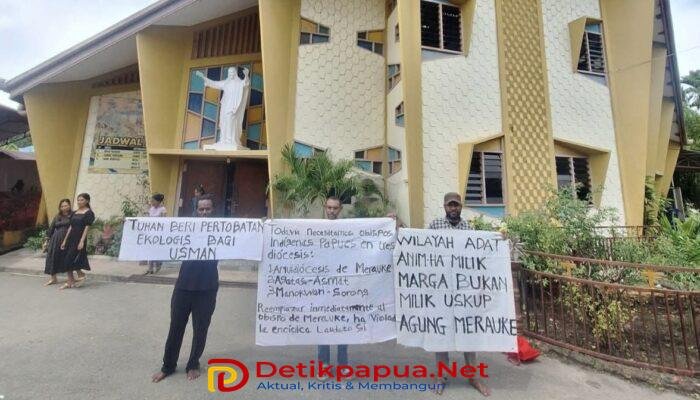 JADWAL
TUHAN BERI PERTOBATAN
EKOLOGIS BAGI
USMAN
Todavia necesitamos obispos
Indigenas Papúes en tres
diócesis:
1. Arquidiócesis de Merauke
2. Agatas-Asmat
3. Manokwari-Sorong
Reempazar inmediatamente al
obispo de Merauke, ha Violad
la encíclica Laudato Si
WILAYAH ADAT
ANIM-HA MILIK
MARGA BUKAN
MILIK USKUP
AGUNG MERAUKE
Detikpapua.Net
Aktual, Kritis & Membangun